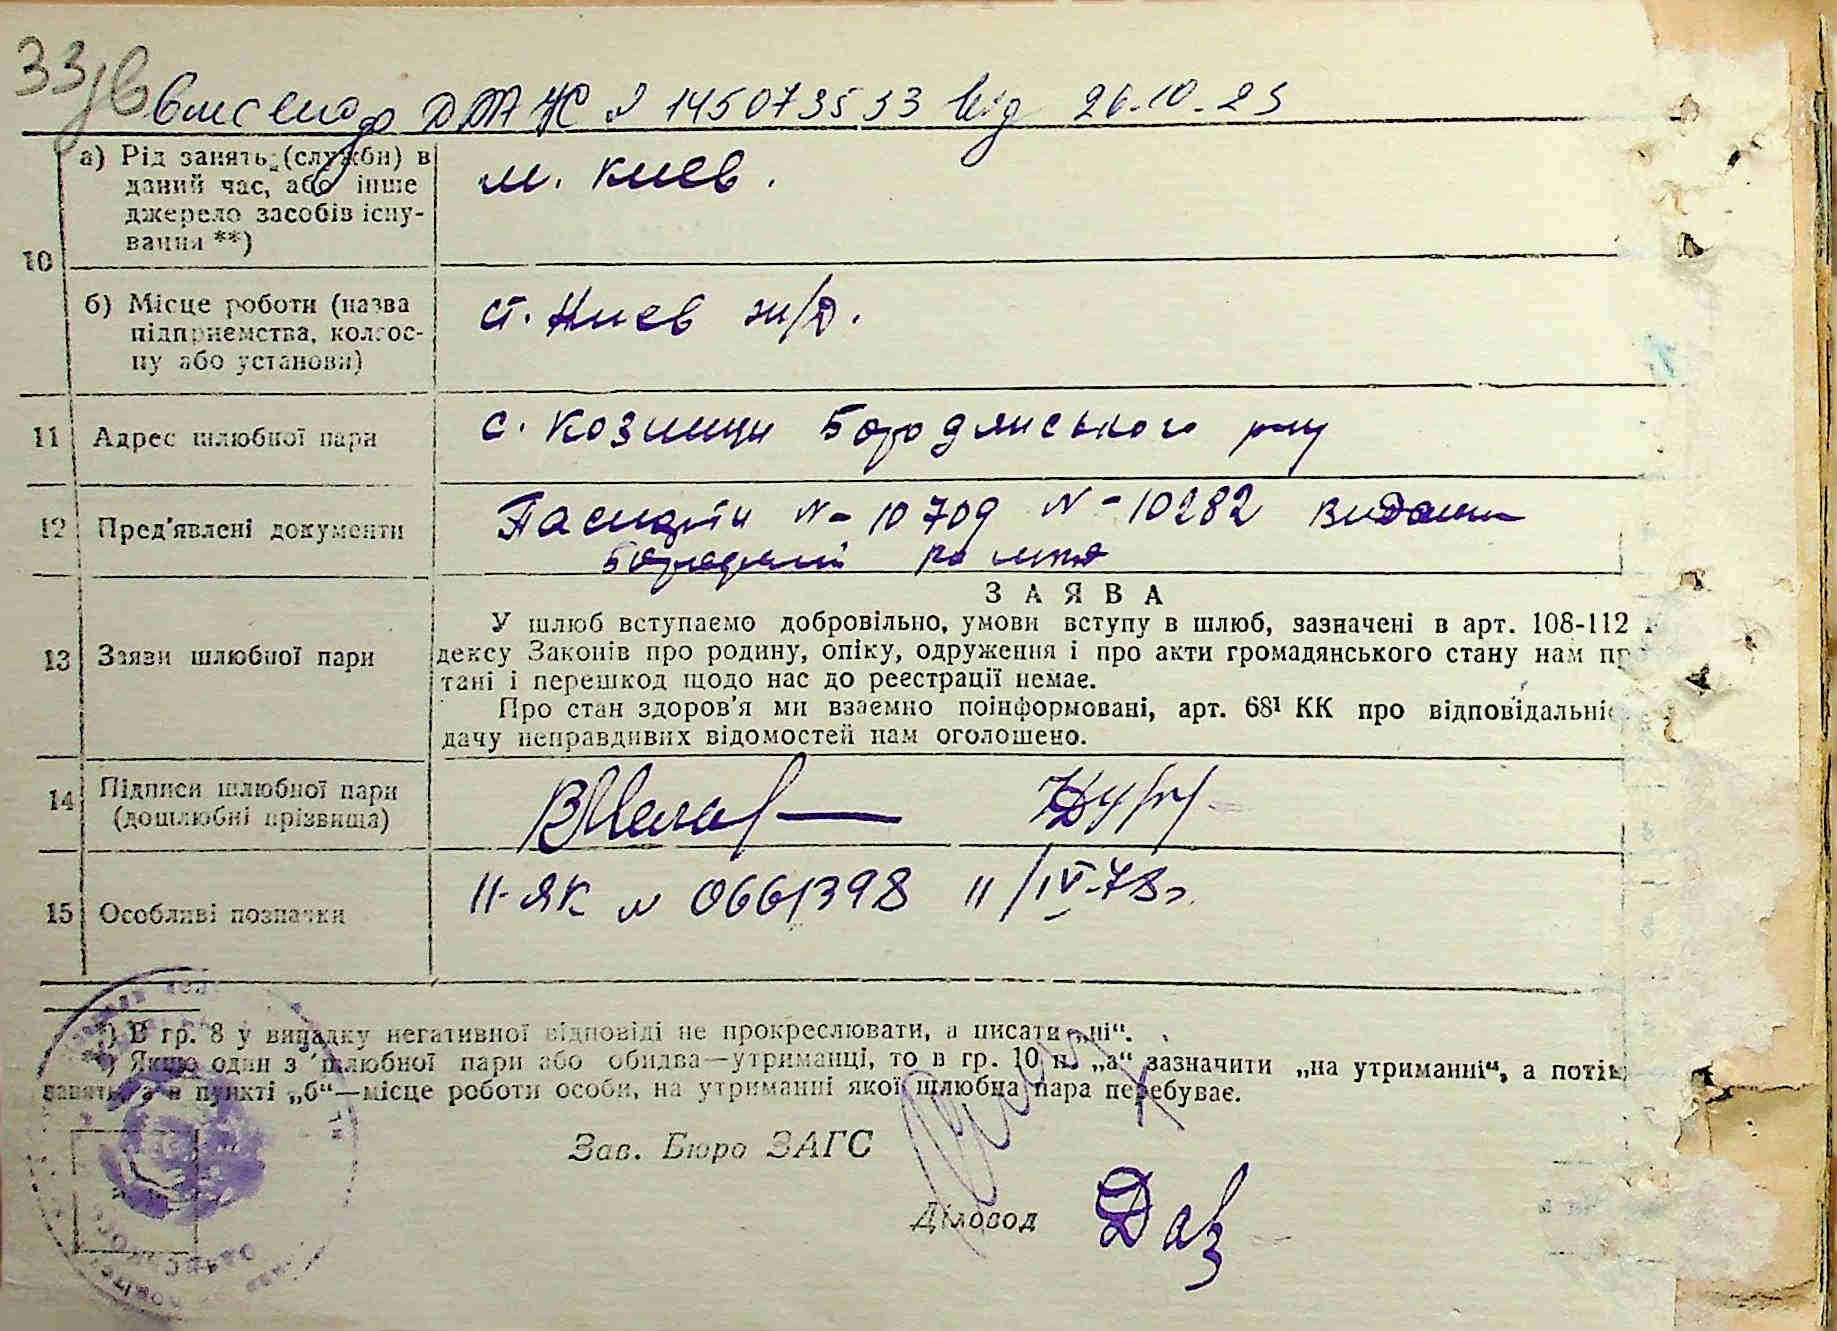 33/в внесено до ДРАЦС № 145073533 від 26.10.23
10 а) Рід занять (служби) в даний час, або інше джерело засобів існування **)
м. Киев.
б) Місце роботи (назва підприємства, колгоспу або установи)
ст. Киев ж/д.
11 Адрес шлюбної пари
с. Козинци Бородянського р-ну
12 Пред'явлені документи
Паспорти N-10709 N-10282 видани
13 Заяви шлюбної пари
ЗАЯВА
У шлюб вступаємо добровільно, умови вступу в шлюб, зазначені в арт. 108-112
дексу Законів про родину, опіку, одруження і про акти громадянського стану нам пр
тані і перешкод щодо нас до реєстрації немає.
Про стан здоров'я ми взаємно поінформовані, арт. 68¹ КК про відповідальніс
дачу неправдивих відомостей нам оголошено.
14 Підписи шлюбної пари
(дошлюбні прізвища)
15 Особливі позначки
II-ЯК № 0661398 11/IV-78г.
*) В гр. 8 у випадку негативної відповіді не прокреслювати, а писати „ні“.
**) Якщо один з шлюбної пари або обидва—утриманці, то в гр. 10 п. „а“ зазначити „на утриманні“, а потім
занять, а в пункті „б“—місце роботи особи, на утриманні якої шлюбна пара перебуває.
Зав. Бюро ЗАГС
Діловод